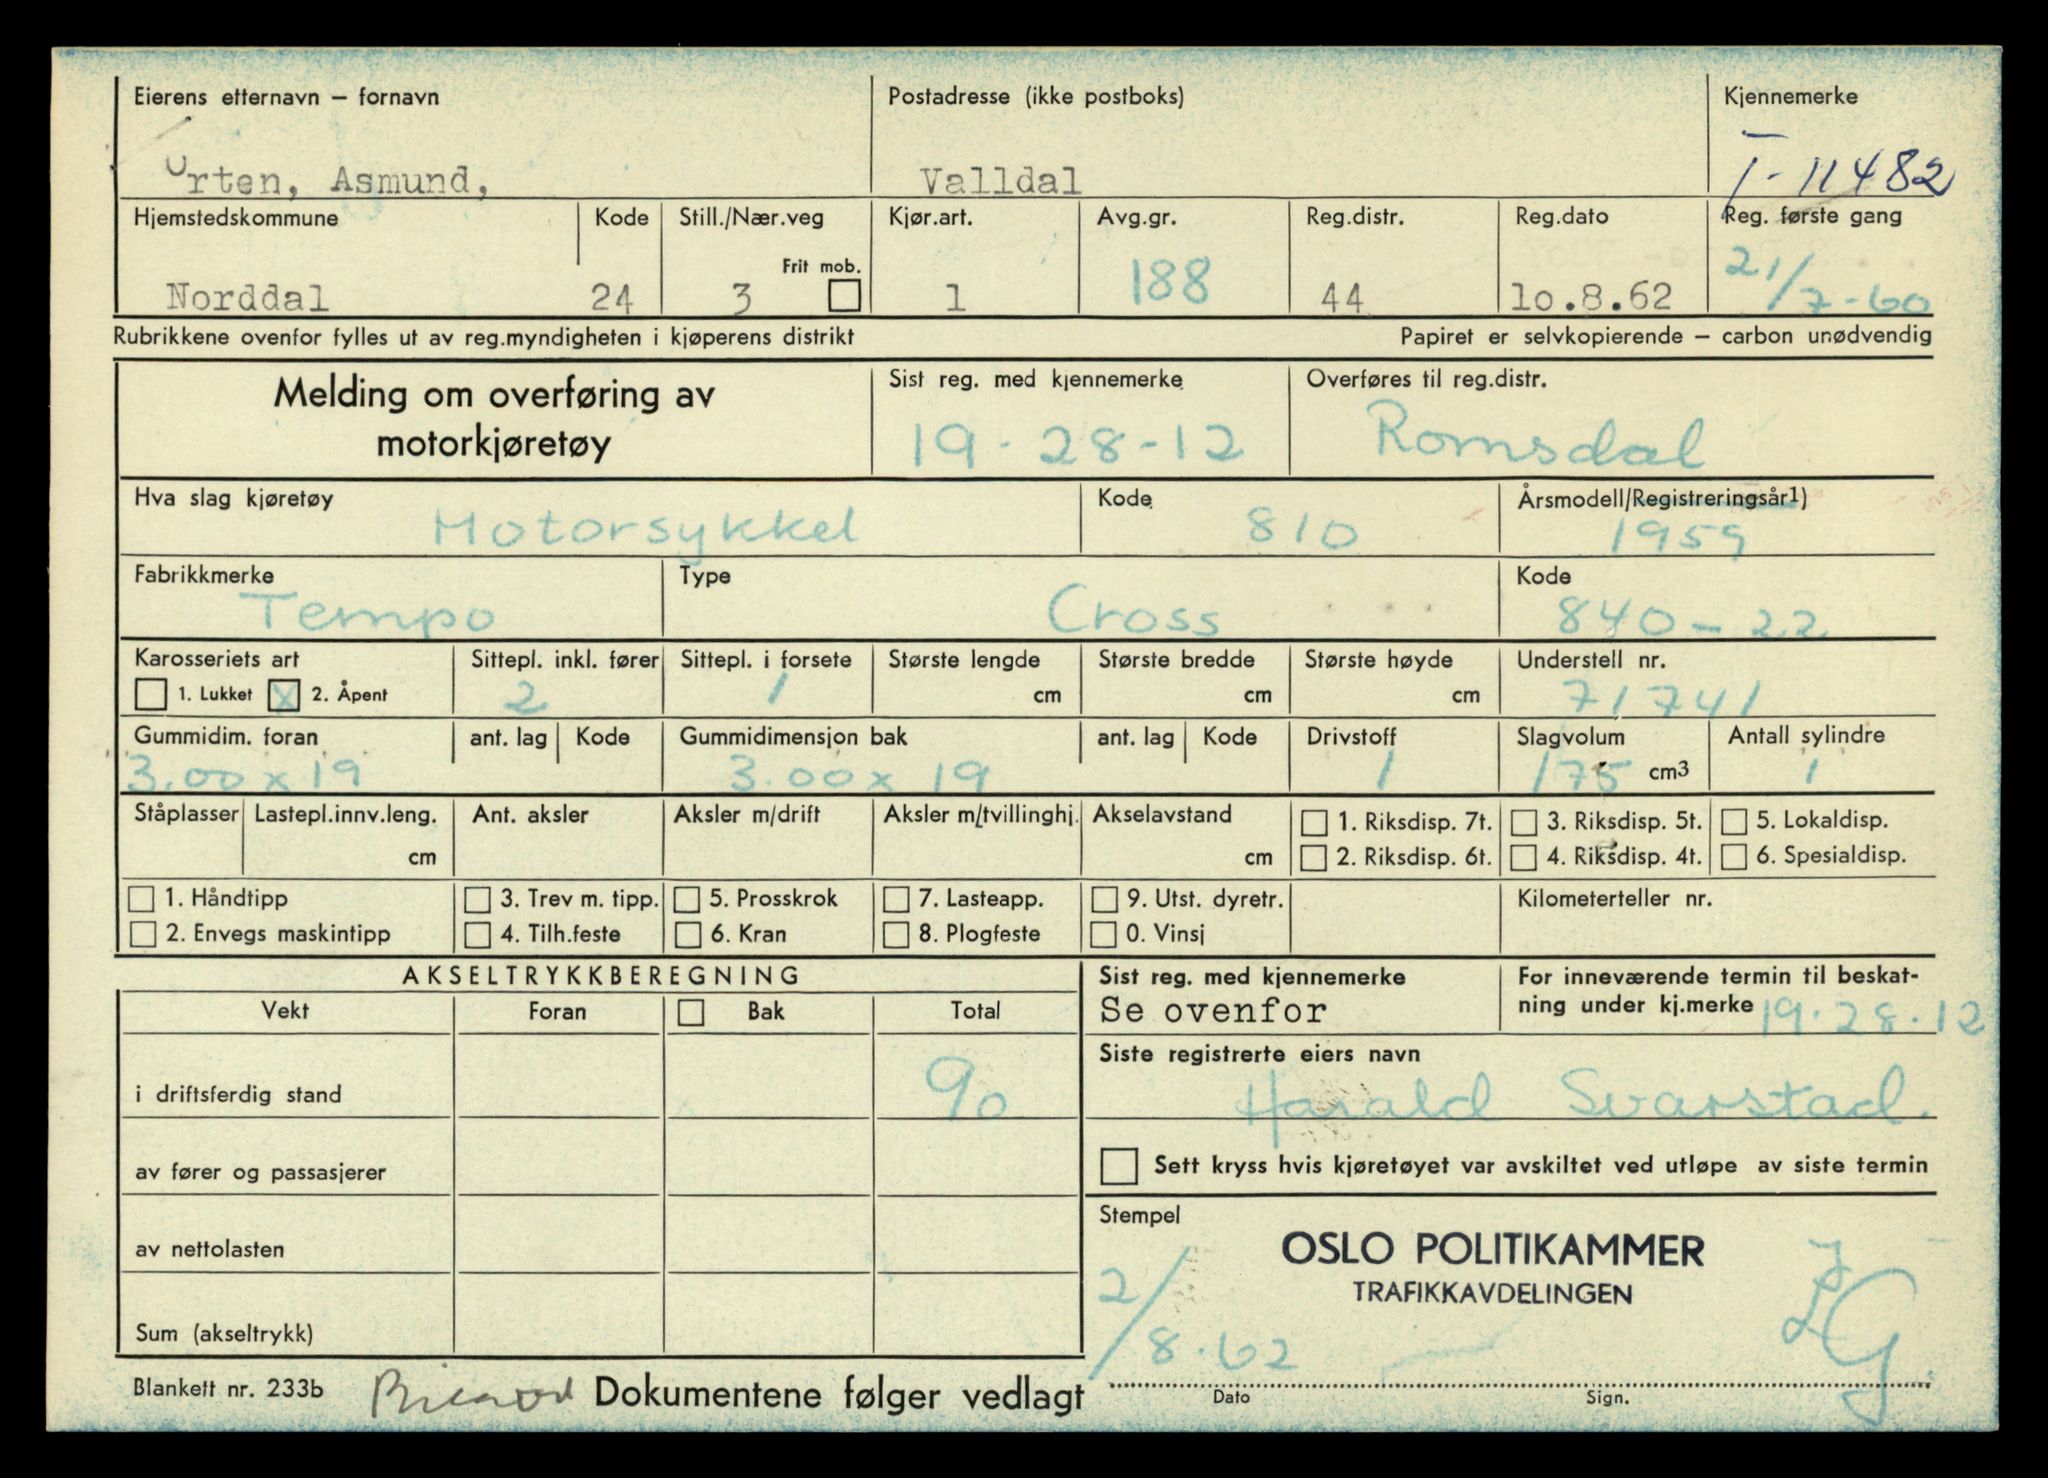 Eierens etternavn – fornavn Postadresse (ikke postboks) Kjennemerke
Orten, Asmund, Valldal T-11482
Hjemstedskommune Kode Still./Nær.veg Kjør.art. Avg.gr. Reg.distr. Reg.dato Reg. første gang
Frit mob.
Norddal 24 3 1 188 44 10.8.62 21/7-60
Rubrikkene ovenfor fylles ut av reg.myndigheten i kjøperens distrikt Papiret er selvkopierende – carbon unødvendig
Melding om overføring av
motorkjøretøy
Sist reg. med kjennemerke Overføres til reg.distr.
19-28-12 Romsdal
Hva slag kjøretøy Kode Årsmodell/Registreringsår1)
Motorsykkel 810 1959
Fabrikkmerke Type Kode
Tempo Cross 840-22
Karosseriets art Sittepl. inkl. fører Sittepl. i forsete Største lengde Største bredde Største høyde Understell nr.
1. Lukket X 2. Åpent 2 1 cm cm cm 71741
Gummidim. foran ant. lag Kode Gummidimensjon bak ant. lag Kode Drivstoff Slagvolum Antall sylindre
3.00 x 19 3.00 x 19 1 175 cm3 1
Ståplasser Lastepl.innv.leng. Ant. aksler Aksler m/drift Aksler m/tvillinghj. Akselavstand 1. Riksdisp. 7t. 3. Riksdisp. 5t. 5. Lokaldisp.
cm cm 2. Riksdisp. 6t. 4. Riksdisp. 4t. 6. Spesialdisp.
1. Håndtipp 3. Trev m. tipp. 5. Prosskrok 7. Lasteapp. 9. Utst. dyretr. Kilometerteller nr.
2. Envegs maskintipp 4. Tilh.feste 6. Kran 8. Plogfeste 0. Vinsj
AKSELTRYKKBEREGNING
Vekt Foran Bak Total
i driftsferdig stand 90
av fører og passasjerer
av nettolasten
Sum (akseltrykk)
Sist reg. med kjennemerke For inneværende termin til beskat-
Se ovenfor ning under kj.merke 19.28.12
Siste registrerte eiers navn
Harald Svarstad
Sett kryss hvis kjøretøyet var avskiltet ved utløpe av siste termin
Stempel
OSLO POLITIKAMMER
TRAFIKKAVDELINGEN
2/8.62
Dato Sign.
Blankett nr. 233b Dokumentene følger vedlagt